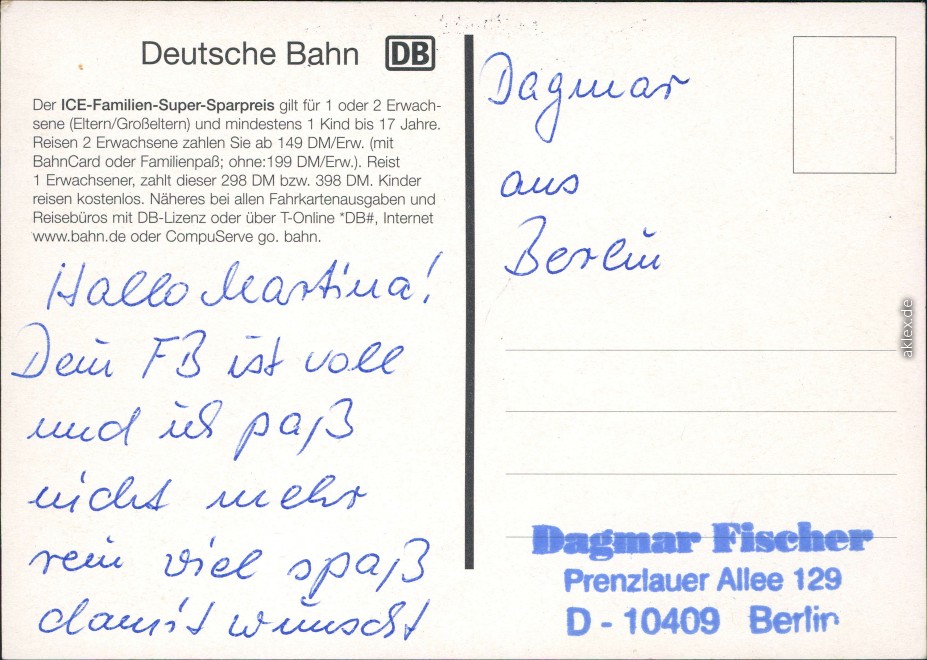 Deutsche Bahn DB
Der ICE-Familien-Super-Sparpreis gilt für 1 oder 2 Erwach-
sene (Eltern/Großeltern) und mindestens 1 Kind bis 17 Jahre.
Reisen 2 Erwachsene zahlen Sie ab 149 DM/Erw. (mit
BahnCard oder Familienpaß; ohne:199 DM/Erw.). Reist
1 Erwachsener, zahlt dieser 298 DM bzw. 398 DM. Kinder
reisen kostenlos. Näheres bei allen Fahrkartenausgaben und
Reisebüros mit DB-Lizenz oder über T-Online *DB#, Internet
www.bahn.de oder CompuServe go. bahn.
Hallo Martina!
Dein FB ist voll
und ich paß
nicht mehr
rein viel spaß
damit wünscht
Dagmar
aus
Berlin
aklex.de
Dagmar Fischer
Prenzlauer Allee 129
D - 10409 Berlin